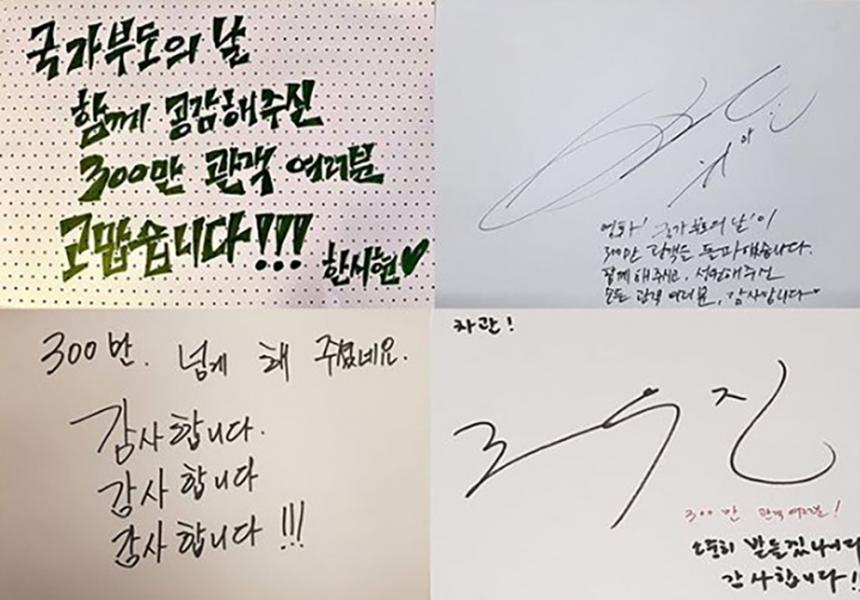 국가부도의 날
함께 공감해주신
300만 관객 여러분
고맙습니다!!!
한시현♥
영화 '국가부도의 날'이
300만 관객을 돌파했습니다.
함께해주시고, 성원해주신
모든 관객 여러분, 감사합니다♥
300만. 넘게 해 주셨네요.
감사합니다.
감사합니다
감사합니다!!!
차관!
조우진
300만 관객 여러분!
소중히 받들겠나이다
감사합니다!